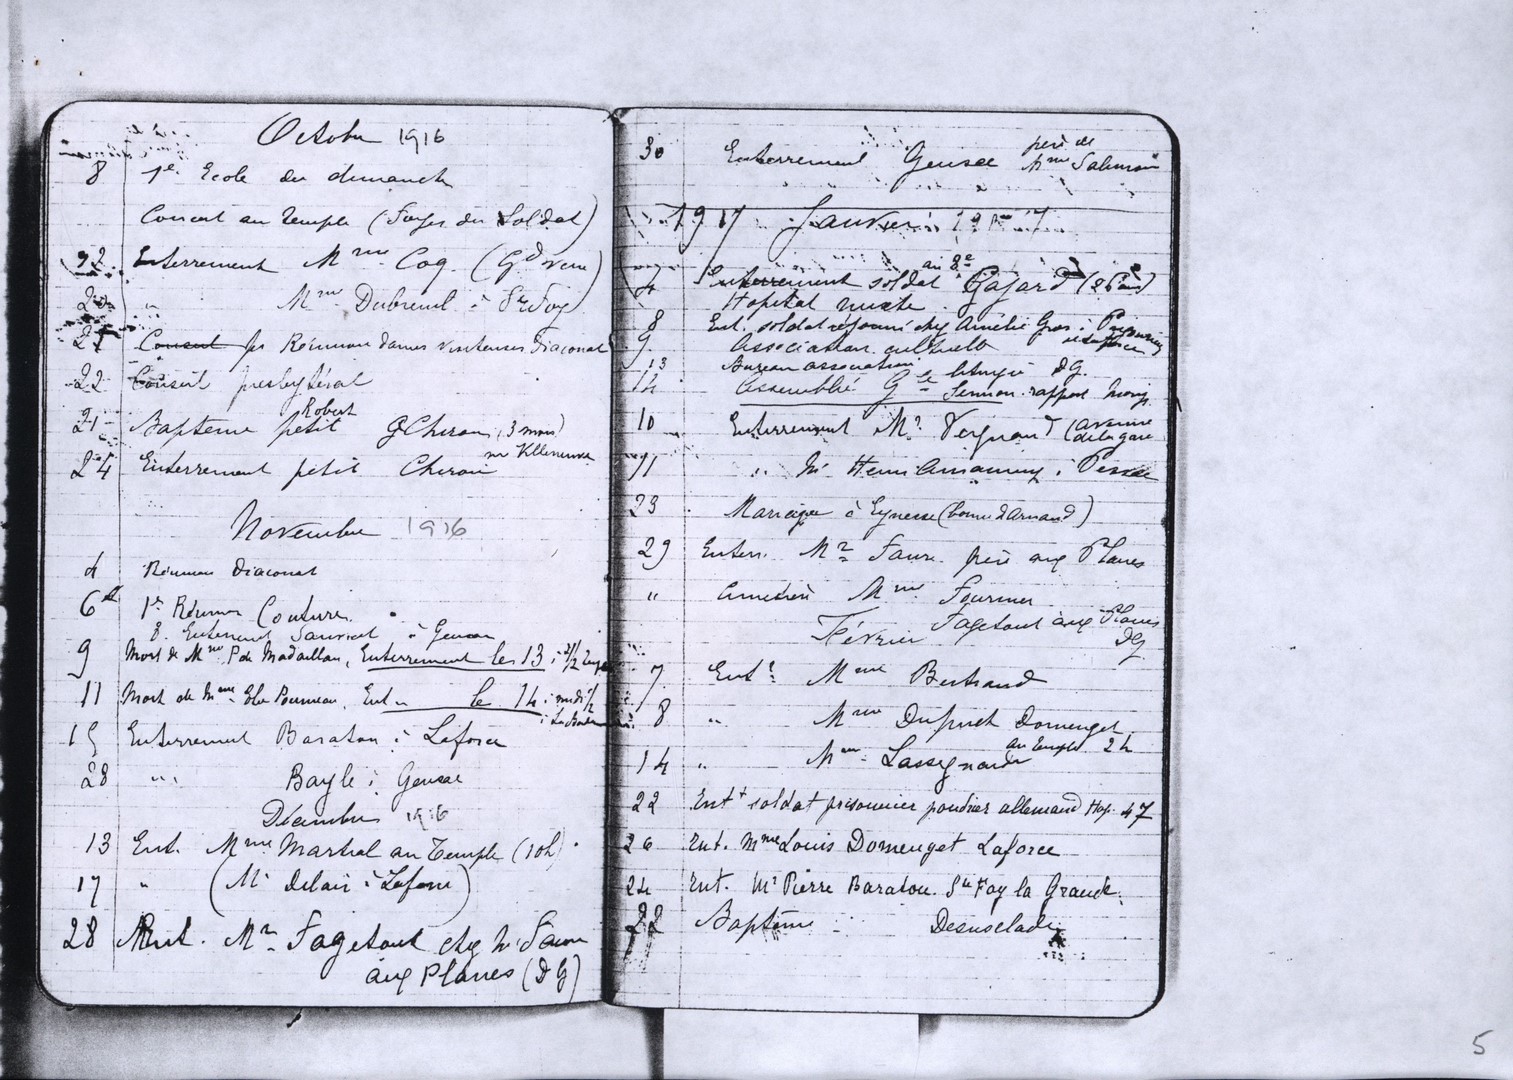 Octobre 1916
8 1re Ecole du dimanche
Concert au Temple (Foyer du Soldat)
22 Enterrement Mme Coq. (Gd rue)
" Mme Dubreuil à Ste Foy
21 Conseil Réunion dames visiteuses Diaconat
22 Conseil presbytéral
Robert
21 Baptême petit G Chiron (3 mois)
24 Enterrement petit Chiron Villeneuve
Novembre 1916
4 Réunion Diaconat
6 1re Réunion Couture
8. Enterrement à Gensac
9 Mort de Mme P de Madaillan, Enterrement le 13 à 2/2
11 Mort de Mme Pourreau, Ent. le 14 à midi 1/2
15 Enterrement Baraton à Laforce
28 " Bayle à Gensac
Décembre 1916
13 Ent. Mme Martial au Temple (10h)
17 " (Mr Delair à Laforce)
28 Ent. Mr Fagetout chez Mr Faure
aux Planes (DG)
30 Enterrement Gensac père de
Mme
1917 Janvier
4 Enterrement soldat au 8e Gajard
Hopital mixte
8 Ent. soldat chez Amélie Gros à
9 Association cultuelle
13 Bureau association DG.
14 Assemblée Gle Sermon rapport
10 Enterrement Mr Vergnaud (avenue
de la gare
11 " Mr Henri à
23 Mariage à Eynesse (bonne d'Arnaud)
29 Enterr. Mr Faure père aux Planes
" Cimetière Mme Fournier
Fagetout aux Planes
Février DG
7 Ent. Mme Bertrand
8 " Mme Dupuch Domenget
au Temple 2h
14 " Mme Lassegnardie
22 Entt soldat prisonnier poudrier allemand Hop. 47
26 Ent. Mme Louis Domenget Laforce
24 Ent. Mr Pierre Baraton. Ste Foy la Grande.
22 Baptême
5